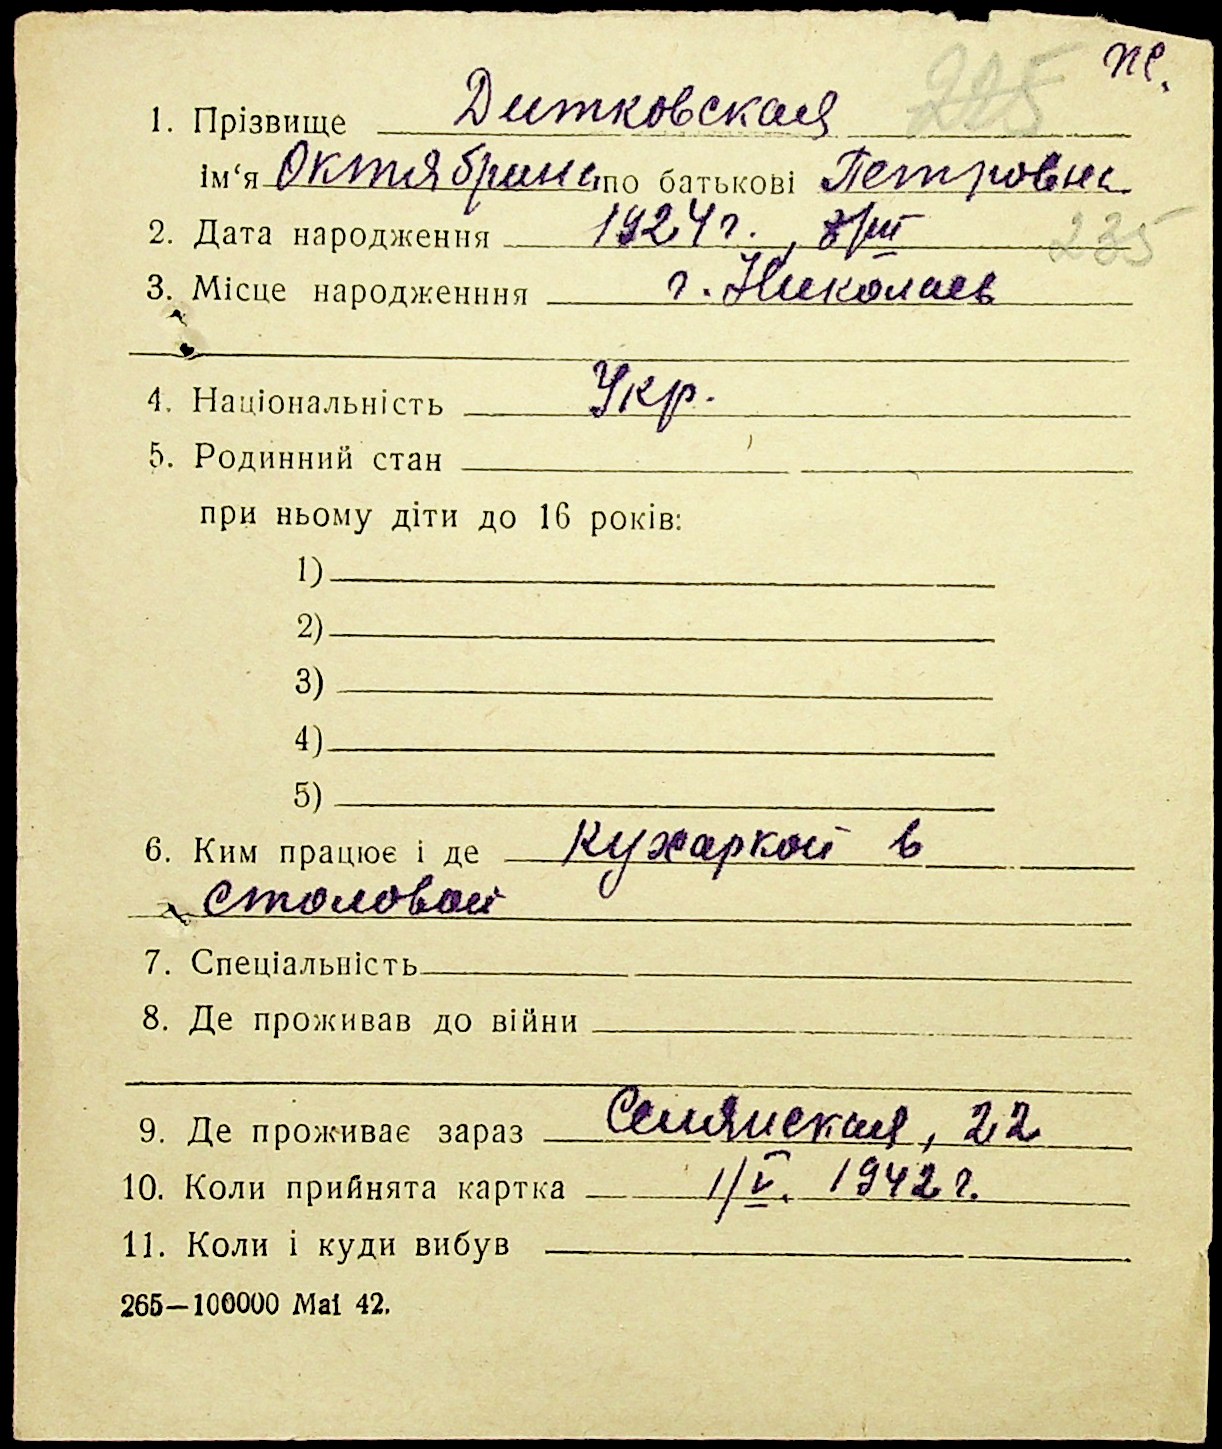 225 же.
1. Прізвище Дитковская
ім‘я Октябрина по батькові Петровна
2. Дата народження 1924 г., 8/III
235
3. Місце народженння г. Николаев
4. Національність Укр.
5. Родинний стан
при ньому діти до 16 років:
1)
2)
3)
4)
5)
6. Ким працює і де Кухаркой в
столовой
7. Спеціальність
8. Де проживав до війни
9. Де проживає зараз 22
10. Коли прийнята картка 1/V. 1942 г.
11. Коли і куди вибув
265—100000 Mai 42.